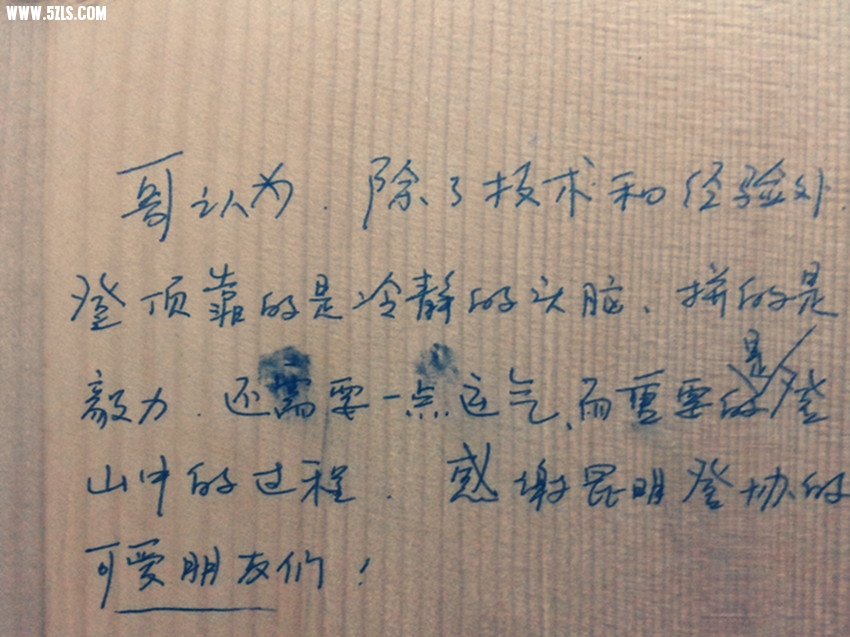 WWW.5ZLS.COM
哥认为.除了技术和经验外.
登顶靠的是冷静的头脑、拼的是
毅力.还需要一点运气、而重要的是登
山中的过程.感谢昆明登协的
可爱朋友们!